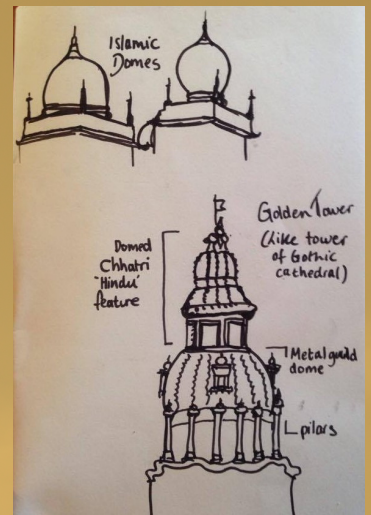 Islamic
Domes
Golden Tower
(Like tower
of Gothic
cathedral)
Domed
Chhatri
'Hindu'
feature
Metal guild
dome
pilars